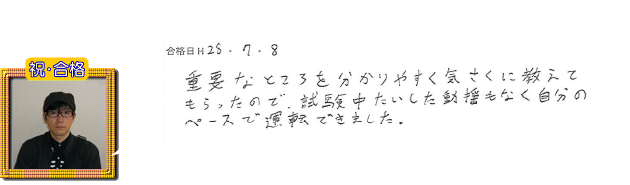 祝・合格
合格日 H 25 . 7 . 8
重要なところを分かりやすく気さくに教えて
もらったので、試験中たいした動揺もなく自分の
ペースで運転できました。